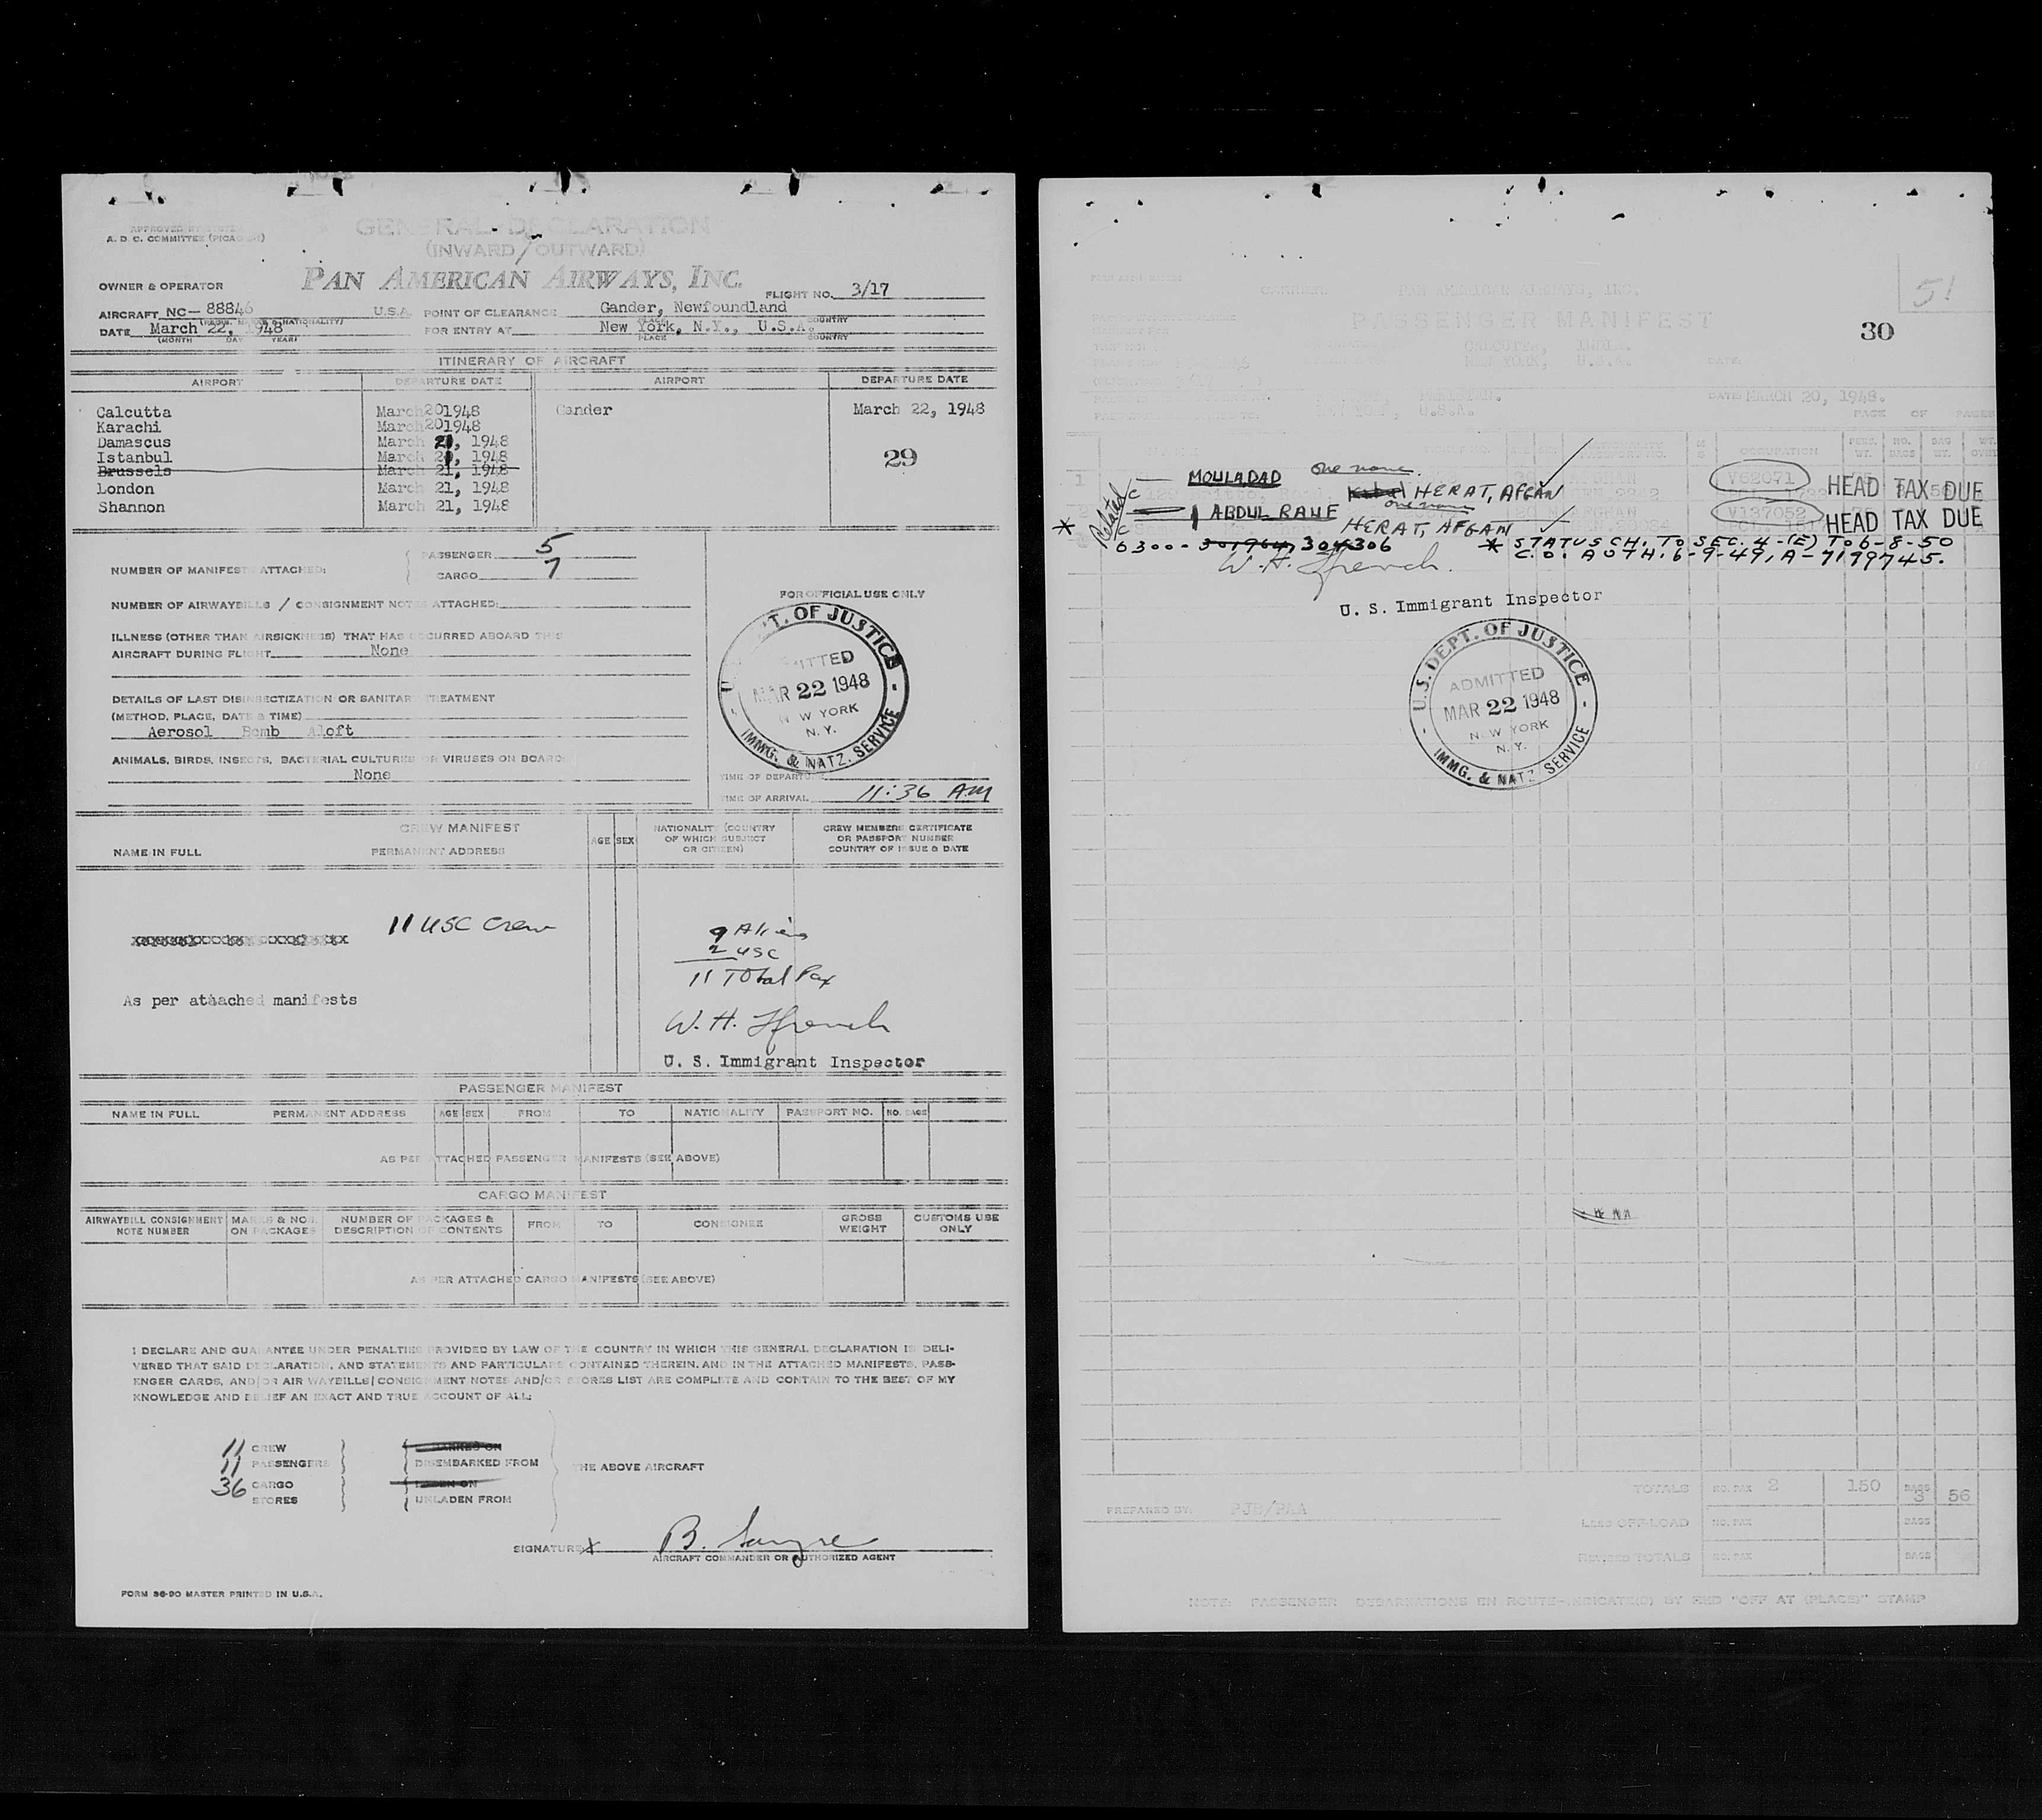 APPROVED BY
A. D. C. COMMITTEE (PICAO
GENERAL DECLARATION
(INWARD/OUTWARD)
PAN AMERICAN AIRWAYS, INC.
OWNER & OPERATOR
FLIGHT NO. 3/17
AIRCRAFT NC- 88846 U.S.A. POINT OF CLEARANCE Gander, Newfoundland
DATE March 22, 1948 FOR ENTRY AT New York, N.Y., U.S.A.
(MONTH DAY YEAR) PLACE COUNTRY
ITINERARY OF AIRCRAFT
AIRPORT DEPARTURE DATE AIRPORT DEPARTURE DATE
Calcutta March 20 1948 Gander March 22, 1948
Karachi March 20 1948
Damascus March 21, 1948
Istanbul March 21, 1948
Brussels March 21, 1948
29
London March 21, 1948
Shannon March 21, 1948
NUMBER OF MANIFESTS ATTACHED: PASSENGER 5
CARGO 7
NUMBER OF AIRWAYBILLS / CONSIGNMENT NOTES ATTACHED:
FOR OFFICIAL USE ONLY
ILLNESS (OTHER THAN AIRSICKNESS) THAT HAS OCCURRED ABOARD THIS
AIRCRAFT DURING FLIGHT None
DETAILS OF LAST DISINSECTIZATION OR SANITARY TREATMENT
(METHOD, PLACE, DATE & TIME)
Aerosol Bomb Aloft
ANIMALS, BIRDS, INSECTS, BACTERIAL CULTURES OR VIRUSES ON BOARD:
None
U.S. DEPT. OF JUSTICE
ADMITTED
MAR 22 1948
NEW YORK
N.Y.
IMMG. & NATZ. SERVICE
TIME OF DEPARTURE
TIME OF ARRIVAL 11:36 AM
CREW MANIFEST
NAME IN FULL PERMANENT ADDRESS AGE SEX NATIONALITY (COUNTRY OF WHICH SUBJECT OR CITIZEN) CREW MEMBERS CERTIFICATE OR PASSPORT NUMBER COUNTRY OF ISSUE & DATE
11 USC Crew
9 Aliens
2 USC
11 Total Pax
As per attached manifests
W. H. Ffrench
U. S. Immigrant Inspector
PASSENGER MANIFEST
NAME IN FULL PERMANENT ADDRESS AGE SEX FROM TO NATIONALITY PASSPORT NO. NO. BAGS
AS PER ATTACHED PASSENGER MANIFESTS (SEE ABOVE)
CARGO MANIFEST
AIRWAYBILL CONSIGNMENT NOTE NUMBER MARKS & NOS. ON PACKAGES NUMBER OF PACKAGES & DESCRIPTION OF CONTENTS FROM TO CONSIGNEE GROSS WEIGHT CUSTOMS USE ONLY
AS PER ATTACHED CARGO MANIFESTS (SEE ABOVE)
I DECLARE AND GUARANTEE UNDER PENALTIES PROVIDED BY LAW OF THE COUNTRY IN WHICH THIS GENERAL DECLARATION IS DELI-
VERED THAT SAID DECLARATION, AND STATEMENTS AND PARTICULARS CONTAINED THEREIN, AND IN THE ATTACHED MANIFESTS, PASS-
ENGER CARDS, AND/OR AIR WAYBILLS/CONSIGNMENT NOTES AND/OR STORES LIST ARE COMPLETE AND CONTAIN TO THE BEST OF MY
KNOWLEDGE AND BELIEF AN EXACT AND TRUE ACCOUNT OF ALL:
11 CREW
11 PASSENGERS DISEMBARKED FROM THE ABOVE AIRCRAFT
36 CARGO
STORES UNLADEN FROM
SIGNATURE
AIRCRAFT COMMANDER OR AUTHORIZED AGENT
FORM 36-90 MASTER PRINTED IN U.S.A.
51
CARRIER: PAN AMERICAN AIRWAYS, INC.
PASSENGER MANIFEST
30
CALCUTTA, INDIA.
NEW YORK, U.S.A. DATE:
PAKISTAN.
DATE: MARCH 20, 1948.
U.S.A.
PAGE OF PAGES
OCCUPATION
1 MOULADAD one name V62071 HEAD TAX DUE
Related C Kabul HERAT, AFGAN
one name
ABDUL RAUF V137052 HEAD TAX DUE
* C HERAT, AFGAN
6300- 301964, 304306 * STATUS CH. TO SEC. 4-(E) TO 6-8-50
C.O. AUTH. 6-9-49, A-7199745.
W. H. Ffrench.
U. S. Immigrant Inspector
U.S. DEPT. OF JUSTICE
ADMITTED
MAR 22 1948
NEW YORK
N.Y.
IMMG. & NATZ. SERVICE
TOTALS NO. PAX 2 150 BAGS 3 56
PREPARED BY: PJB/PAA
LESS OFF-LOAD NO. PAX BAGS
REVISED TOTALS NO. PAX BAGS
NOTE: PASSENGER DEBARKATIONS EN ROUTE-INDICATE(D) BY RED "OFF AT (PLACE)" STAMP